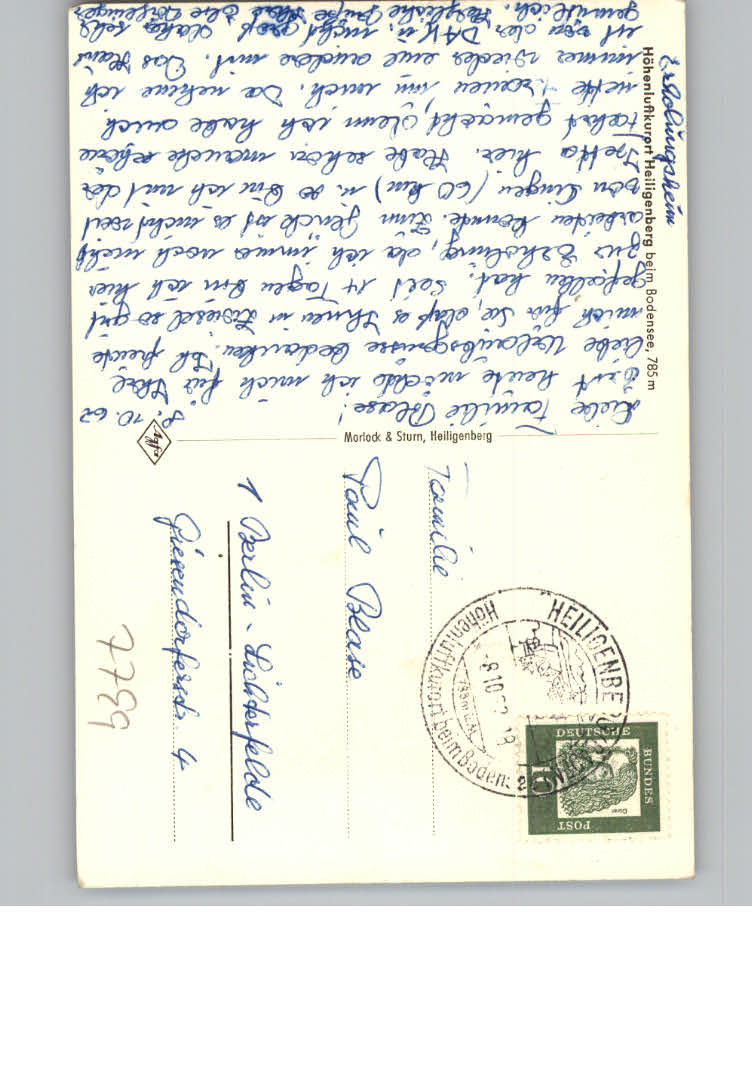 Erholungsheim
Höhenluftkurort Heiligenberg beim Bodensee, 785 m
8.10.62
Liebe Familie Blase!
Erst heute möchte ich mich für Ihre
liebe Urlaubsgrüsse bedanken. Ich freute
mich für Sie, daß es Ihnen in so gut
gefallen hat. Seit 14 Tagen bin ich hier
zur Erholung, da ich immer noch nicht
arbeiten konnte. Zum Glück ist es nicht weit
von Singen (60 km) u. so bin ich mit der
hier. Habe schon manche schöne
Fahrt gemacht, denn ich habe auch
nette Frauen um mich. Da nehme ich
immer wieder eine andere mit. Das Haus
ist von der DAK u. nicht groß, daher sehr
gemütlich. Herzliche Grüße Ihre
Morlock & Sturn, Heiligenberg
Agfa
Familie
Paul Blase
1 Berlin-Lichterfelde
Giesendorferstr 4
7789
HEILIGENBERG
Höhenluftkurort beim Bodensee
-8.10.62-18
DEUTSCHE
BUNDES
POST
10
Dürer